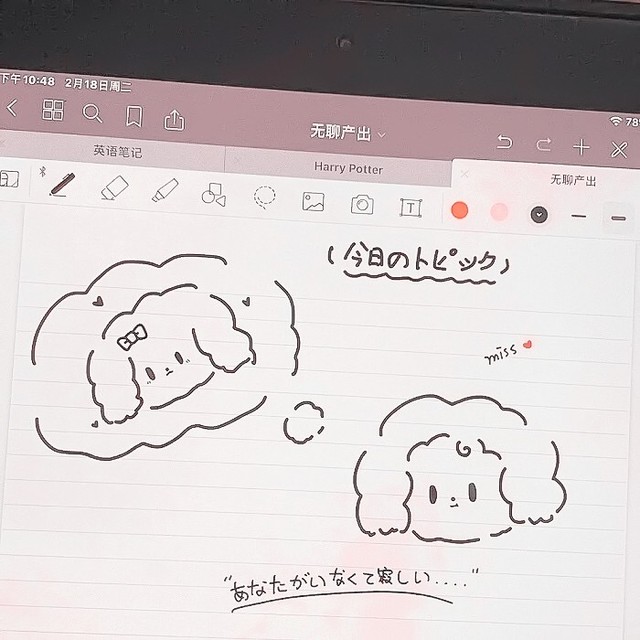 下午10:48 2月18日周二
78
无聊产出
英语笔记
Harry Potter
无聊产出
T
(今日のトピック)
miss
"あなたがいなくて寂しい...."